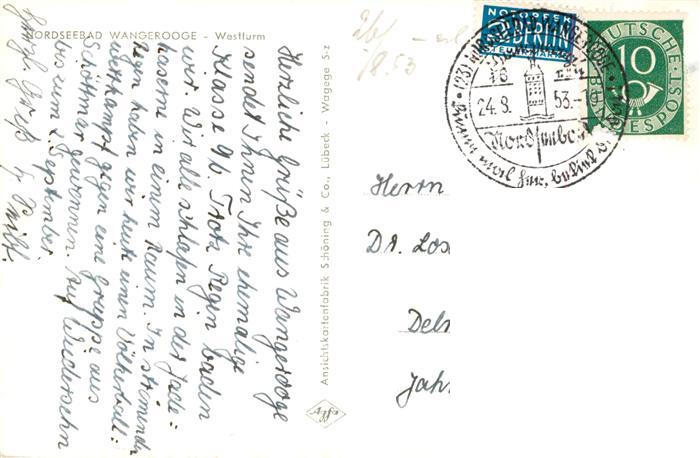 NORDSEEBAD WANGEROOGE - Westturm
Herzliche Grüße aus Wangerooge
sendet Ihnen Ihre ehemalige
Klasse 9b. Trotz Regen baden
wir. Wir alle schlafen in der Jade-
kaserne in einem Raum. In strömend
Regen haben wir heute einen Völkerball-
wettkampf gegen eine Gruppe aus
Schöttmar gewonnen. Auf Wiedersehn
bis zum September
Ansichtskartenfabrik Schöning & Co., Lübeck - Wagege S-z
Agfa
18.53
NOTOPFER
2 BERLIN
STEUERMARKE
DEUTSCHE
10
BUNDESPOST
24.8.53.-
Nordseebad
Herrn
Dr. Los
Delm
Jahn